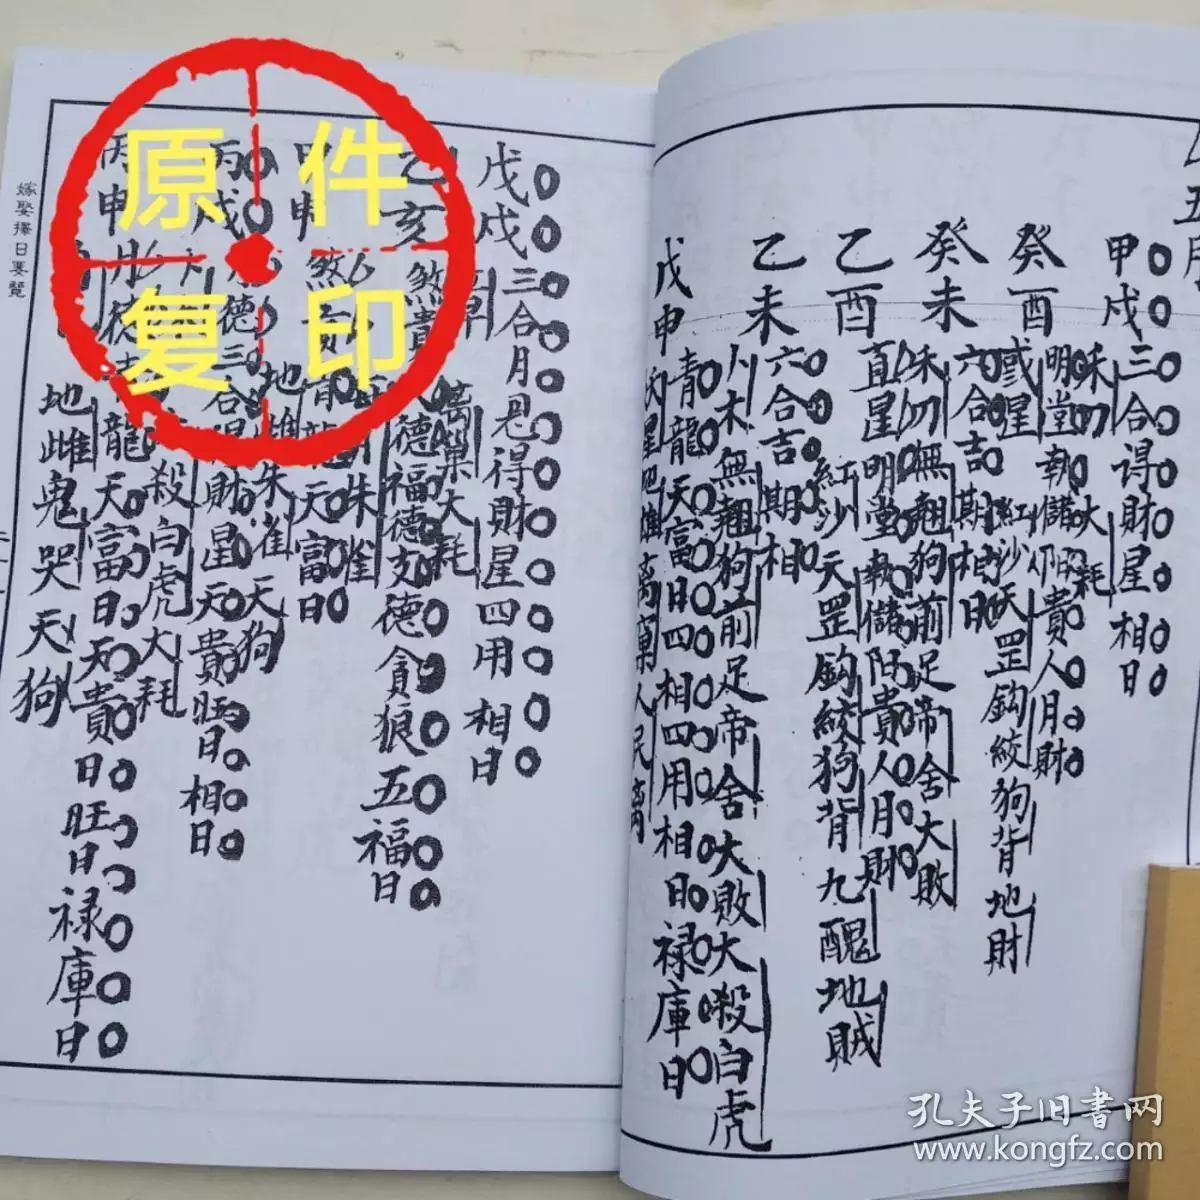 五月
甲戌 三合得財星 相日
癸酉 明堂執儲 陌貴人月財
或星 紅沙天罡鈎絞狗背地財
癸未 六合吉期相日
禾刀無翹狗前足帝舍大敗
乙酉 直星明堂執儲陌貴人月財
紅沙天罡鈎絞狗背九醜地賊
乙未 六合吉期相
小木無翹狗前足帝舍大敗大殺白虎
戊申 青龍天富日四相四用相日禄庫日
人民离
戊戌 三合月恩得財星四用相日
萬巢大耗
乙亥 煞貴 德福德支德貪狼五福日
朱雀
甲申 煞貴青龍天富日
地雌朱雀天狗
丙戌 月德三合得財星天貴旺日相日
殺白虎大耗
丙申 月德青龍天富日天貴日旺日禄庫日
地雌鬼哭天狗
嫁娶擇日要覽
原件
复印
孔夫子旧书网
www.kongfz.com